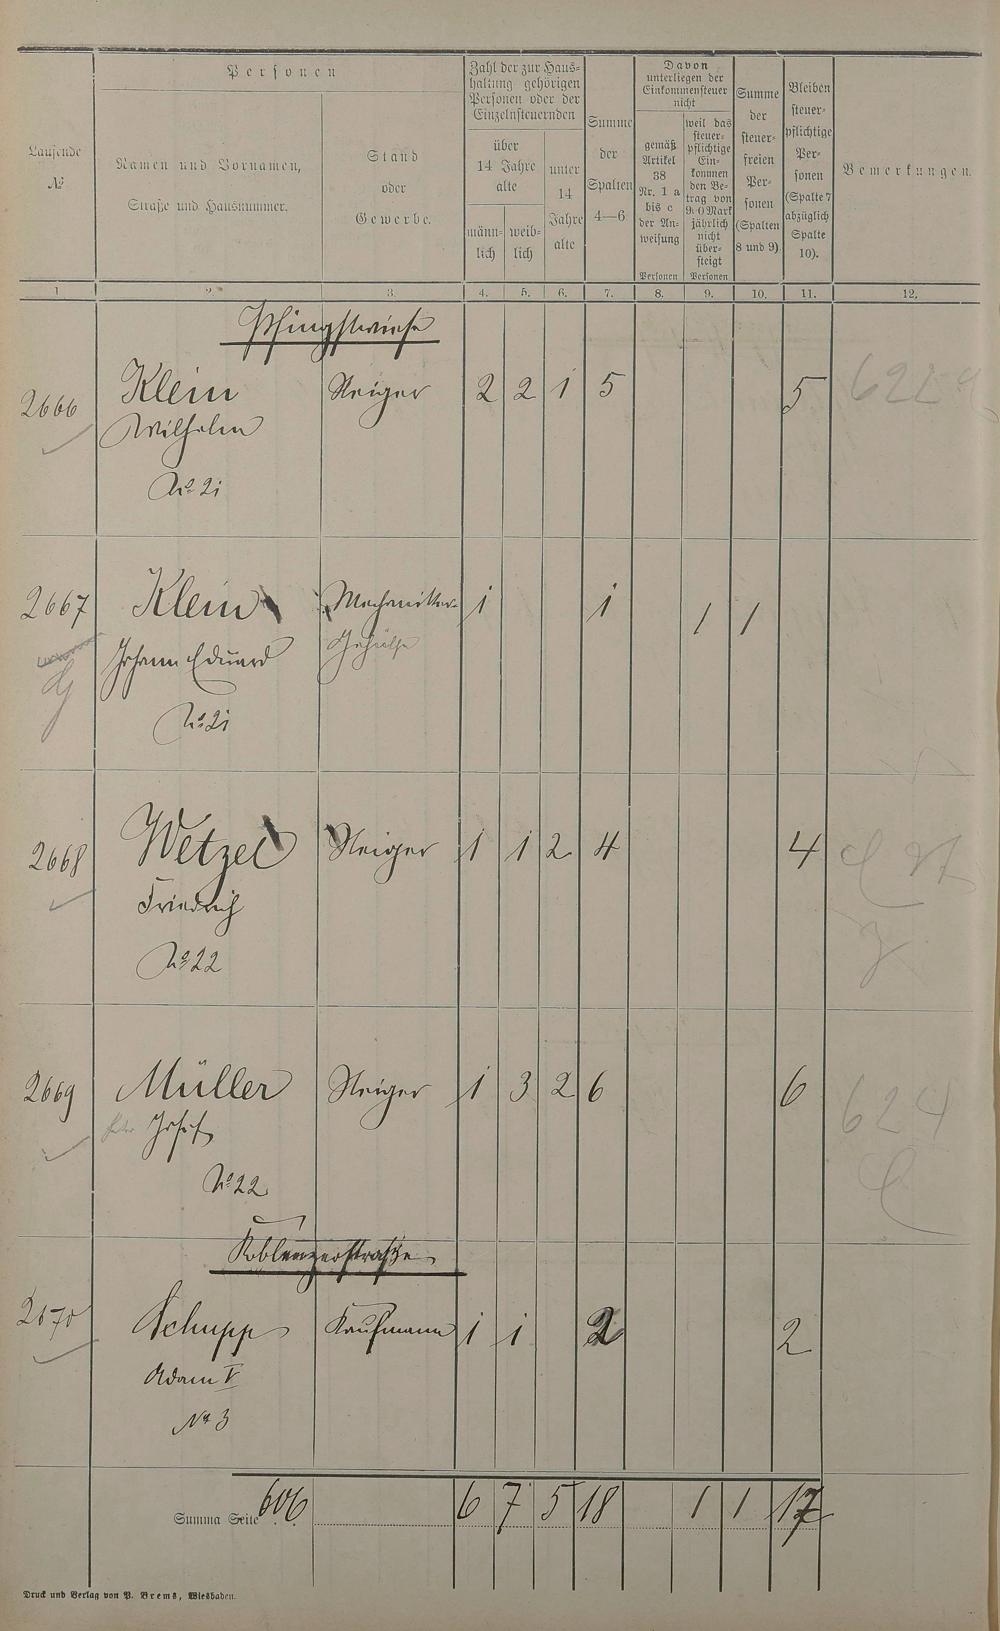 Laufende
№
Personen
Namen und Vornamen,
Straße und Hausnummer.
Stand
oder
Gewerbe.
Zahl der zur Haus-
haltung gehörigen
Personen oder der
Einzelnsteuernden
über
14 Jahre
alte
männ-
lich
weib-
lich
unter
14
Jahre
alte
Summe
der
Spalten
4—6
Davon
unterliegen der
Einkommensteuer
nicht
gemäß
Artikel
38
Nr. 1 a
bis c
der An-
weisung
Personen
weil das
steuer-
pflichtige
Ein-
kommen
den Be-
trag von
900 Mark
jährlich
nicht
über-
steigt
Personen
Summe
der
steuer-
freien
Per-
sonen
(Spalten
8 und 9).
Bleiben
steuer-
pflichtige
Per-
sonen
(Spalte 7
abzüglich
Spalte
10).
Bemerkungen.
1 2. 3. 4. 5. 6. 7. 8. 9. 10. 11. 12.
Pfingstwiese
2666 Klein Steiger 2 2 1 5 5 622
Wilhelm
No 21
2667 Klein 1 1 1 1
Johann Eduard Gehülfe
No 21
2668 Wetzel Steiger 1 1 2 4 4
Friedrich
No 22
2669 Müller Steiger 1 3 2 6 6 624
Josef
No 22
Koblenzerstraße
2670 Schupp Kaufmann 1 1 2 2
Adam V
No 3
Summa Seite 606 6 7 5 18 1 1 17
Druck und Verlag von P. Brems, Wiesbaden.